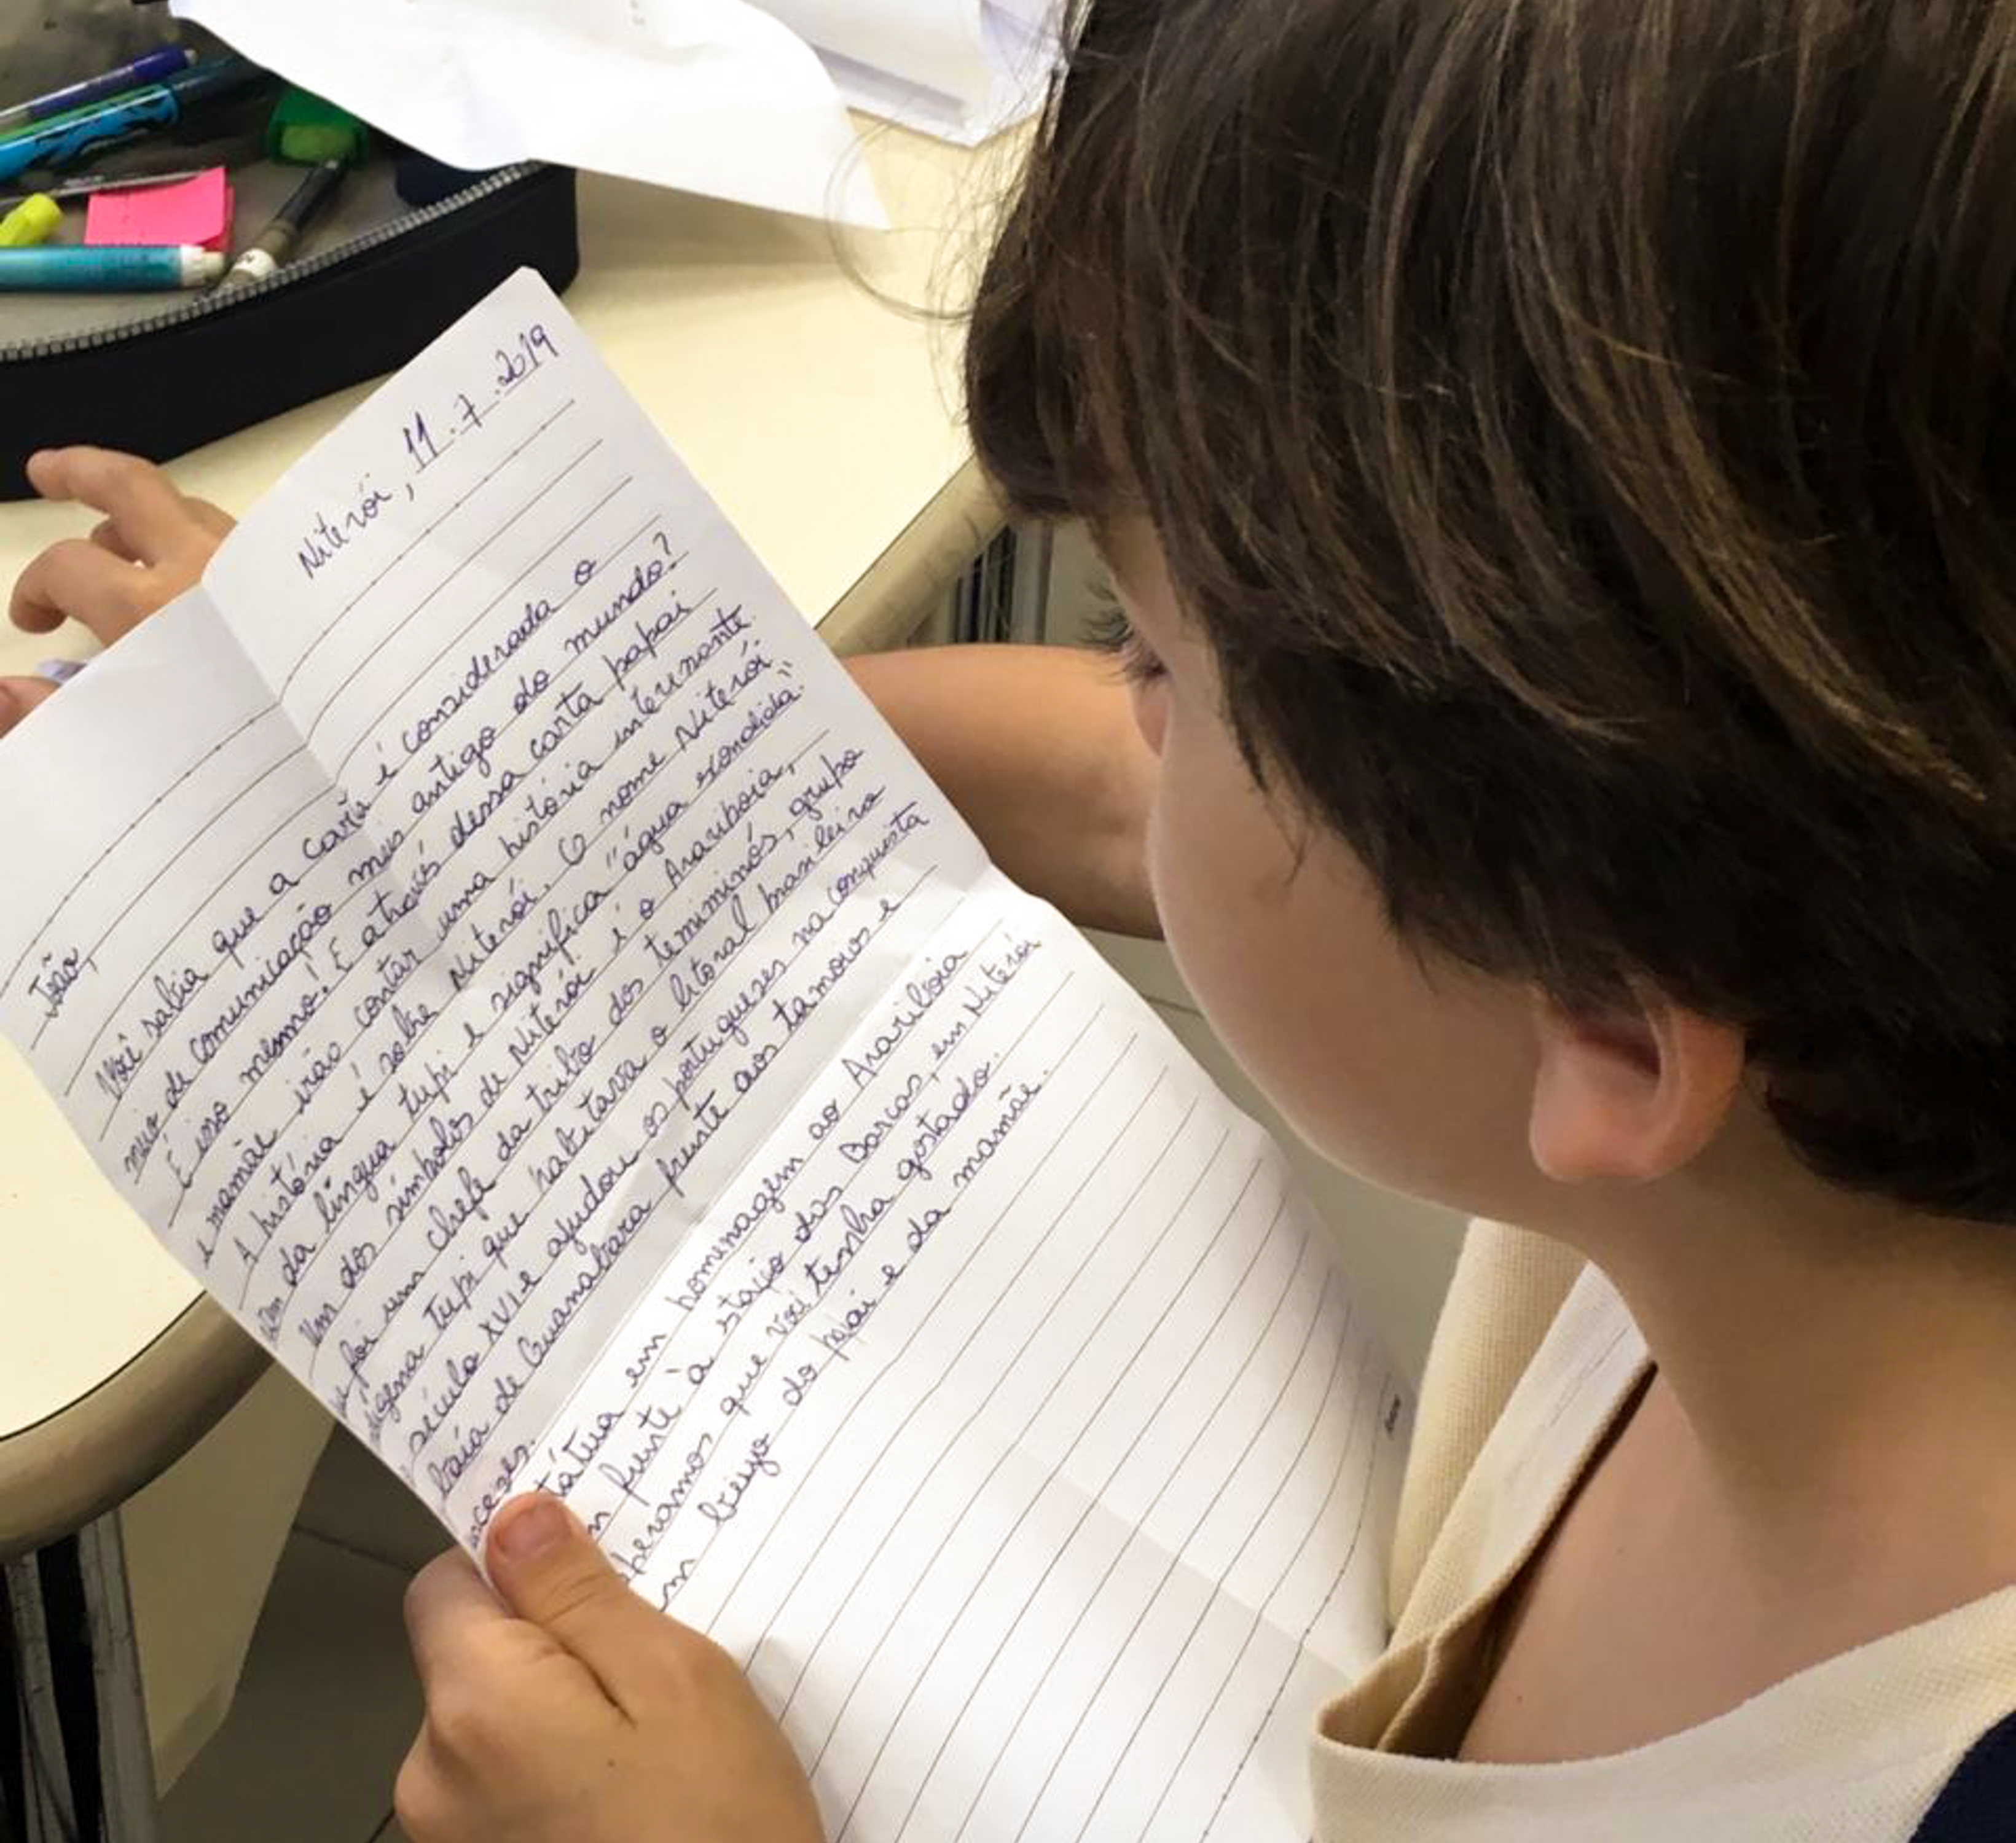 Niterói, 11.7.2019
João,
Você sabia que a carta é considerada o
meio de comunicação mais antigo do mundo?
É isso mesmo! E através dessa carta papai
e mamãe irão contar uma história interessante
A história é sobre Niterói. O nome Niterói
da língua tupi e significa "água escondida".
Um dos símbolos de Niterói é o Arariboia,
foi um chefe da tribo dos temiminós, grupo
Tupi que habitava o litoral brasileiro
século XVI e ajudou os portugueses na conquista
baía de Guanabara frente aos tamoios e
em homenagem ao Arariboia
frente à stação das Barcas, em Niterói
que você tenha gostado.
beijo do pai e da mamãe.